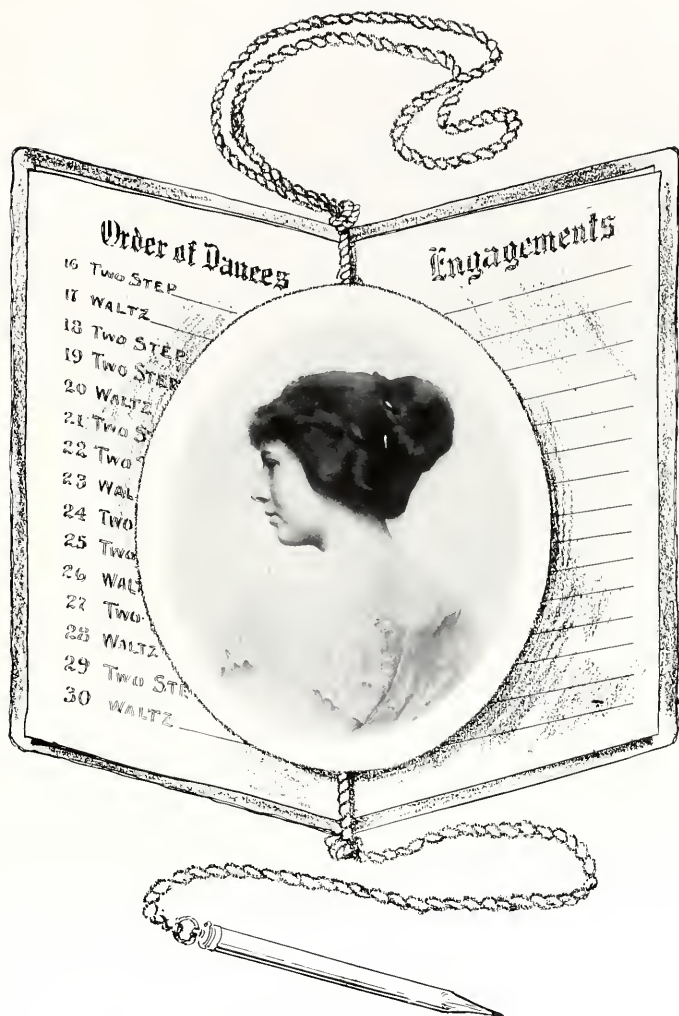 Order of Dances
16 TWO STEP
17 WALTZ
18 TWO STEP
19 TWO STEP
20 WALTZ
21 TWO S
22 TWO
23 WAL
24 TWO
25 TWO
26 WAL
27 TWO
28 WALTZ
29 TWO STE
30 WALTZ
Engagements